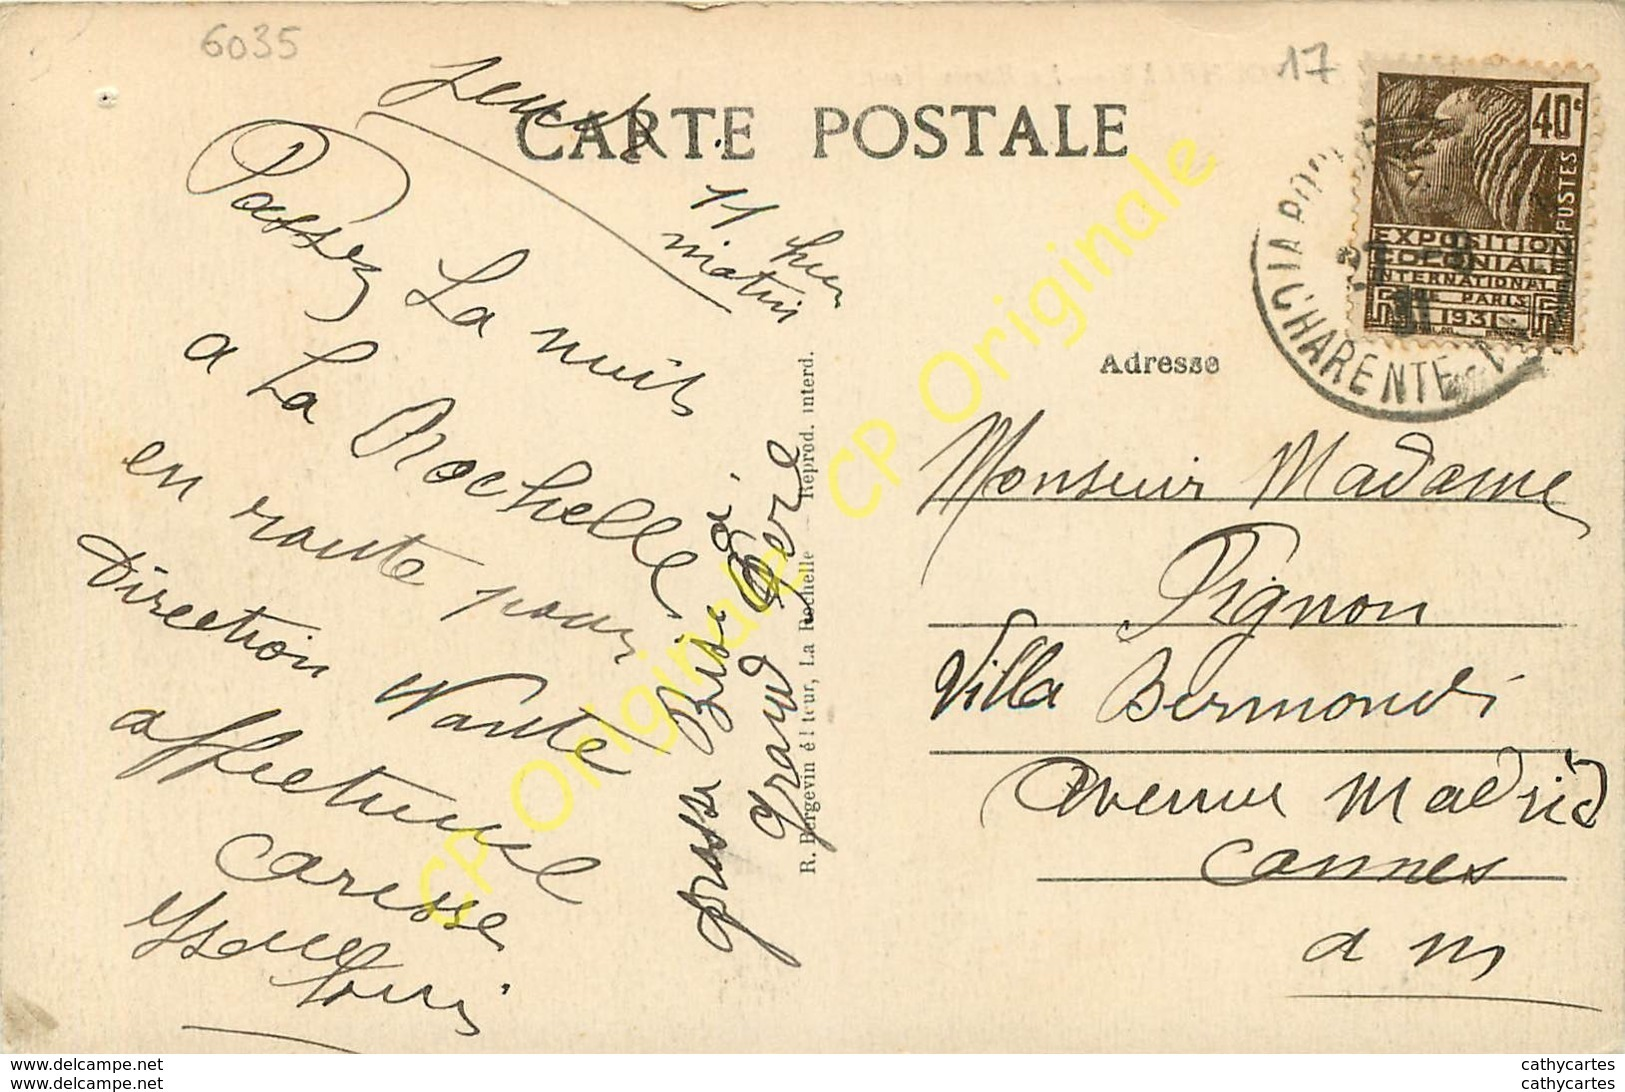 6035
17
CARTE POSTALE
11 heu
matin
Passez La nuits
a La Rochelle
en route pour
Direction Nante
affectueuse
Caresse
Louis
grosse Bise
grand Gere
R. Bergevin éditeur, La Rochelle — Reprod. interd.
40c
POSTES
EXPOSITION
COLONIALE
INTERNATIONALE
PARIS
1931
CHARENTE
Adresse
Monsieur Madame
Pignon
Villa Bermondi
Avenue Madrid
Cannes
a m
CP Originale
CP Originale
CP Originale
delcampe.net
cathycartes
delcampe.net
cathycartes